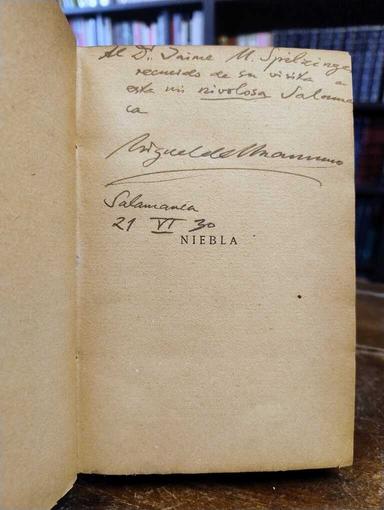 Al Dr. Jaime M. Spilzinger
recuerdo de su visita a
esta mi nivolosa Salaman
ca
Miguel de Unamuno
Salamanca
21 VI 30
NIEBLA